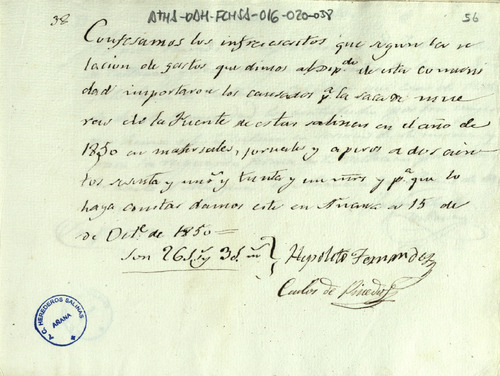 38 ATHA-DAH-FCHSA-016-020-038 56
Confesamos los infrascritos que segun la re
lacion de gastos que dimos al Dip.do de esta comuni
dad importaron los causados p.a la saca de mue
ras de la Fuente de estas salinas en el año de
1850 en materiales, jornales y aperos a doscien
tos sesenta y uno y treinta y un mrs y p.a que lo
haya constar damos este en Añana a 15 de
de Oct.e de 1850=
Son 26 y 3
Hipoloto Fernandez
Carlos de Pinedo
A.C. HEREDEROS SALINAS
AÑANA